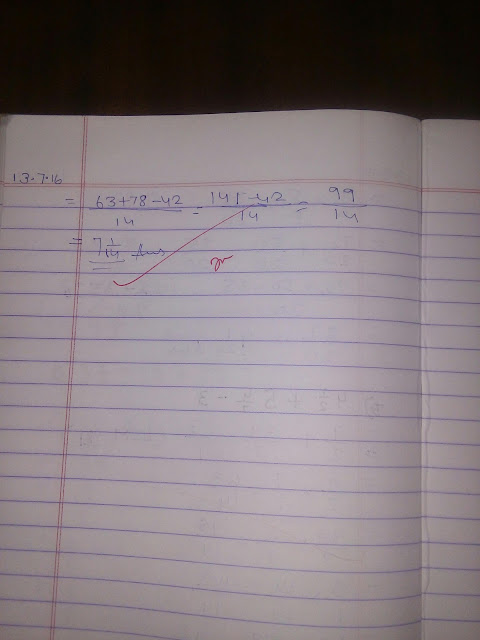 13.7.16
= 63+78-42/14 = 141-42/14 = 99/14
= 7 1/14 Ans